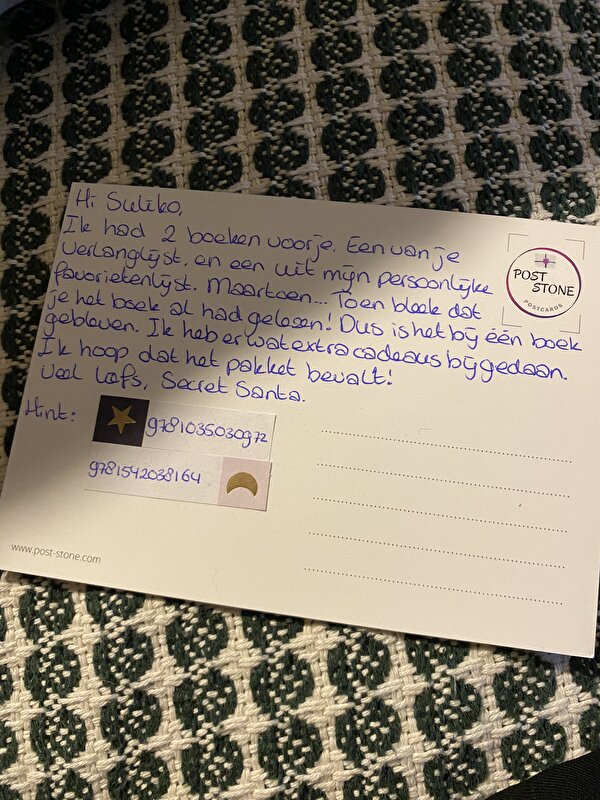 Hi Suliko,
Ik had 2 boeken voor je. Een van je
verlanglijst, en een uit mijn persoonlijke
favorietenlijst. Maar toen... Toen bleek dat
je het boek al had gelezen! Dus is het bij één boek
gebleven. Ik heb er wat extra cadeaus bij gedaan.
Ik hoop dat het pakket bevalt!
Veel liefs, Secret Santa.
Hint:
9781035030972
9781542038164
POST
STONE
POSTCARDS
www.post-stone.com